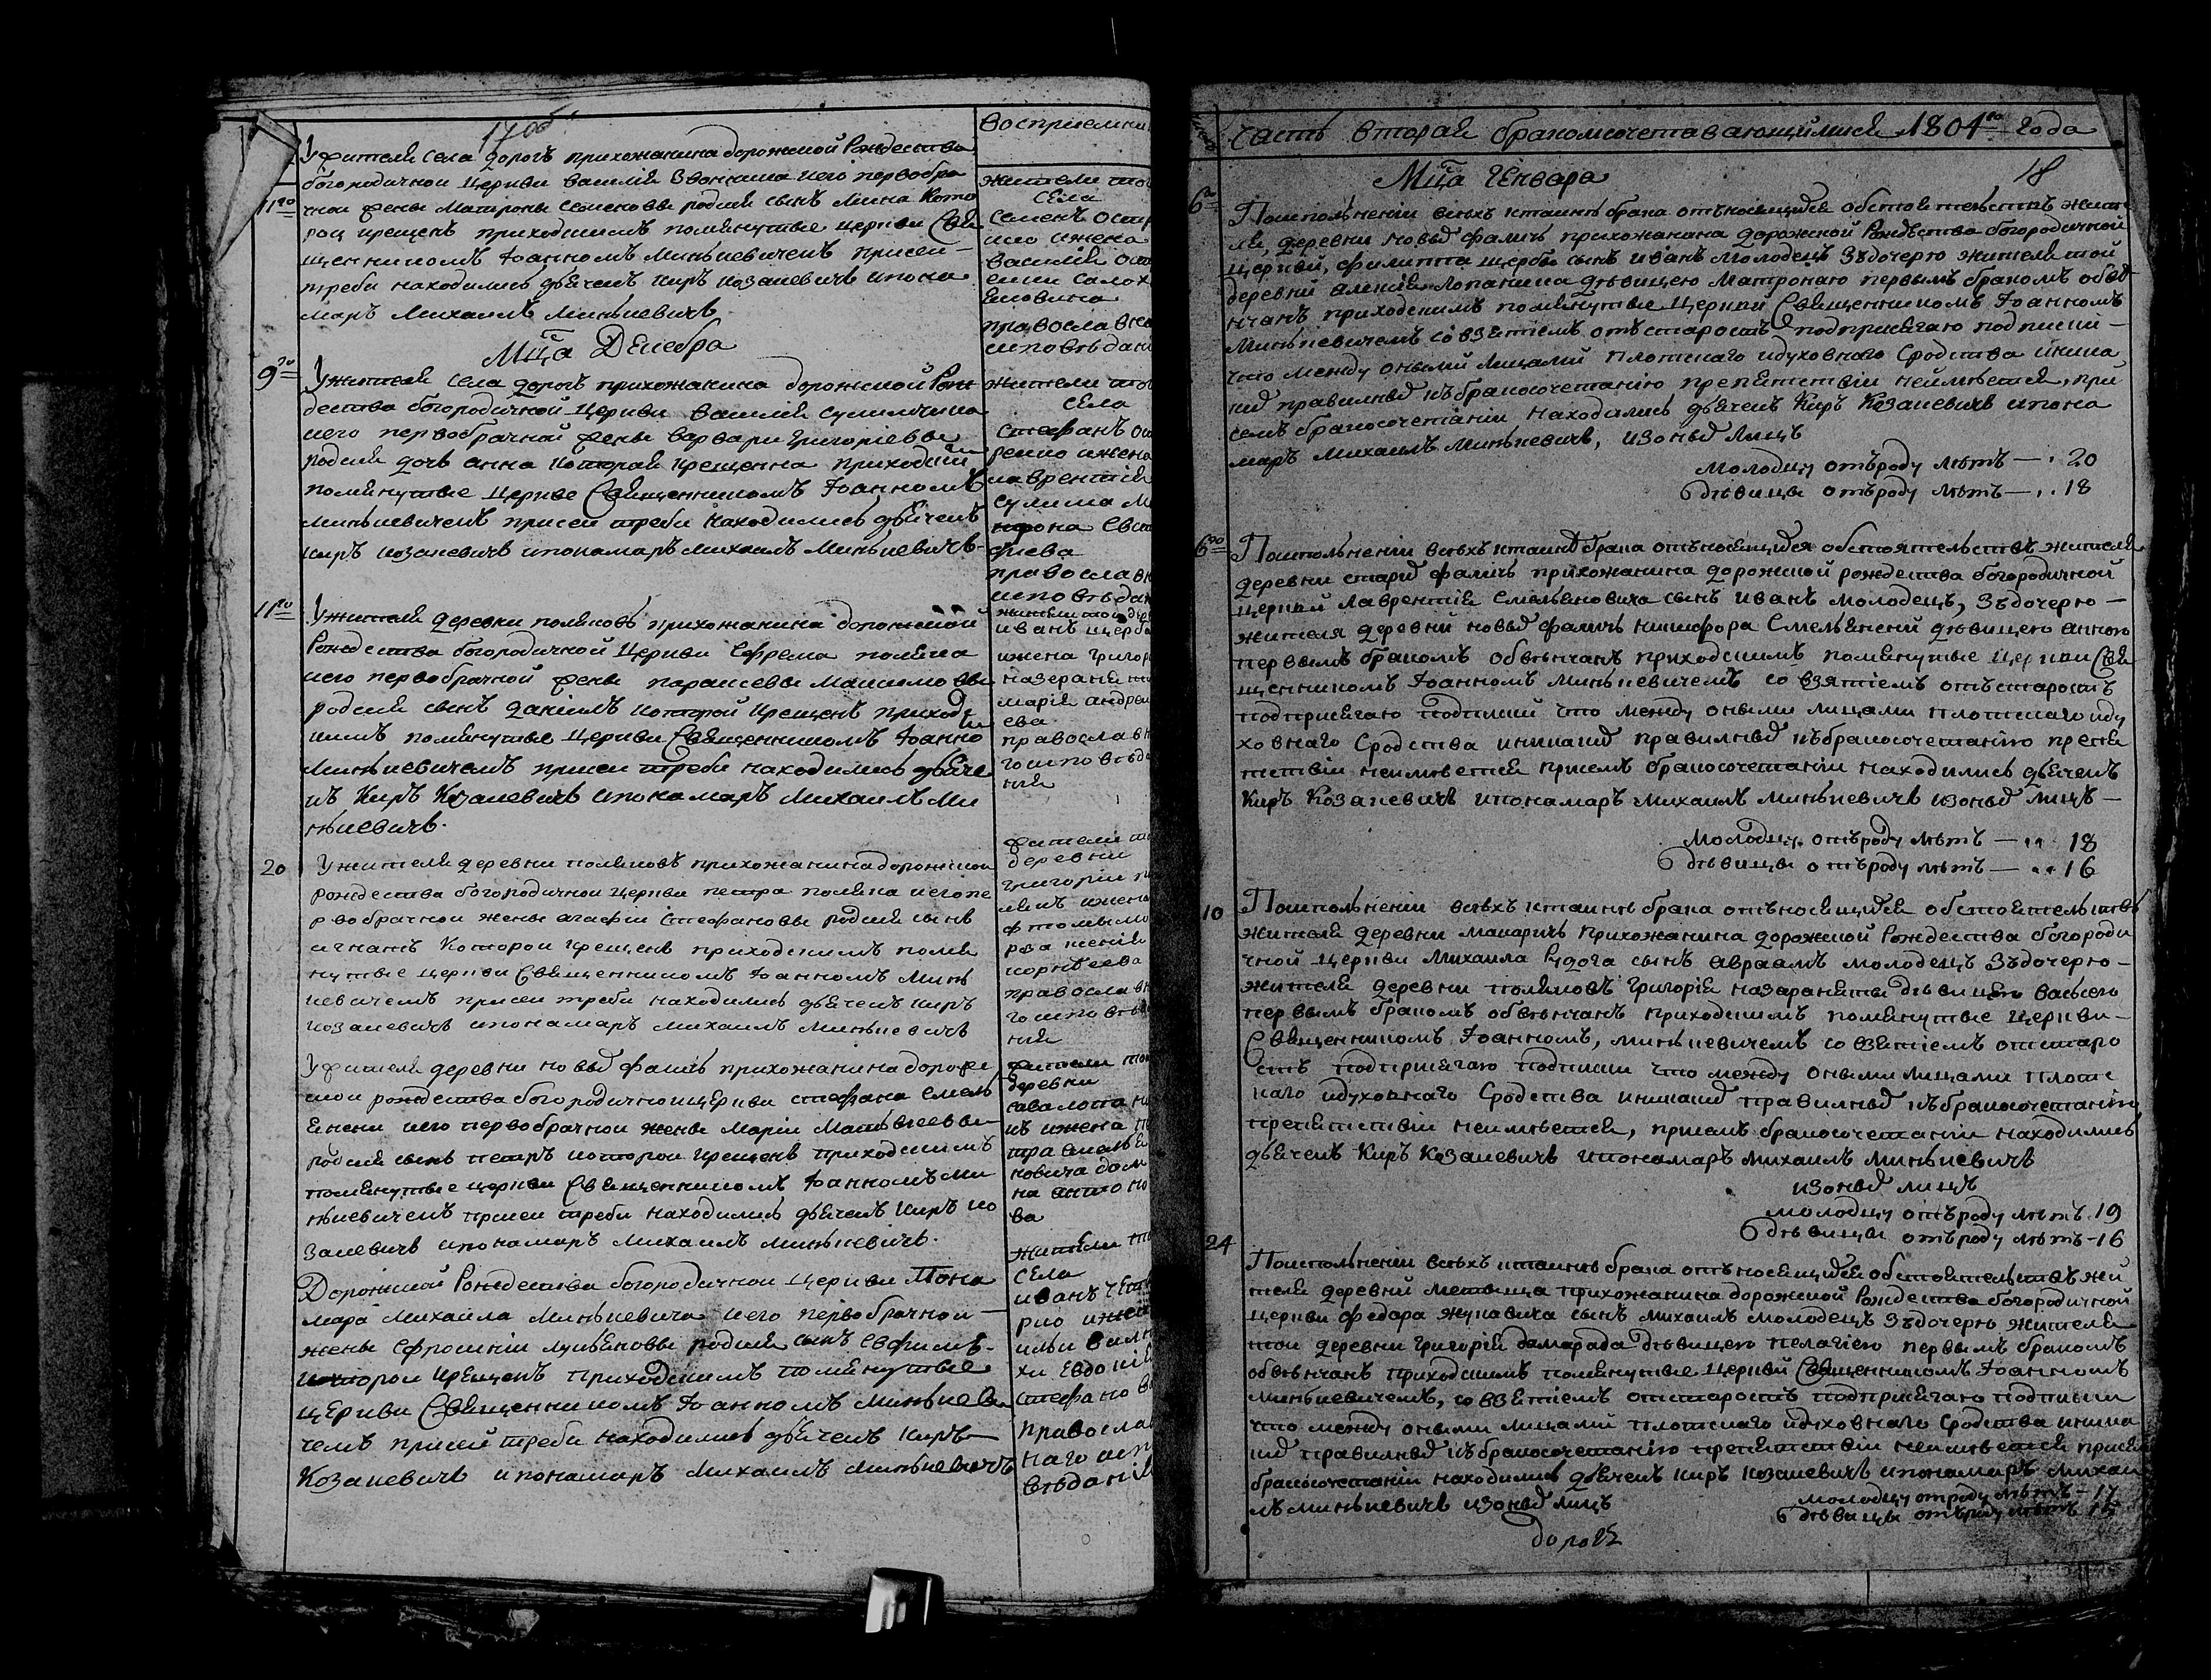 17 об.
Восприемни
Ужителя села дорогъ прихожанина дорожской Рождества
богородичной церкви василія Звонкина иего первобра
11го
чной жены Матроны семеновы родися сынъ Мина Кото
рой крещенъ приходскимъ помянутые церкви Свя
щенникомъ Іоанномъ Минкевичемъ присеи
треби находились дьячекъ киръ козакевичъ ипона
маръ михаилъ минкевичъ
жители той
села
семенъ
ижена
василія
православно
исповѣдані
Мца Декабря
9го
Ужителя села дорогъ прихожанина дорожской Рож
дества богородичной церкви василія сулимичина
иего первобрачной жены варвари григоріевы
родися дочь анна которая крещенна приходски
помянутые церкве Священникомъ Іоанномъ
минкевичемъ присеи треби находились дьячекъ
киръ козакевичъ ипонамаръ михаилъ минкевичъ
жители той
села
стефанъ
ижена
лаврентія
сулима
православн
исповѣдан
11го
Ужителя деревни поляковъ прихожанина дорожской
Рождества богородичной церкви Ефрема поляка
иего первобрачной жены параскевы максимовы
родися сынъ даніилъ которой крещенъ приход
скимъ помянутые церкви Священникомъ Іоанно
минкевичемъ присеи треби находились дьяче
къ Киръ Козакевичъ ипонамаръ михаилъ ми
нкевичъ.
иванъ щерб
ижена григор
назараня
марія андре
ева
православн
гоисповѣда
нія
20
Ужителя деревни поляковъ прихожанина дорожской
рождества богородичной церкви петра поляка иегопе
рвобрачной жены агафіи стефановы родися сынъ
игнатъ Которои крещенъ приходскимъ помя
нутые церкви Священникомъ Іоанномъ минк
кевичемъ присеи треби находились дьячекъ киръ
козакевичъ ипонамаръ михаилъ минкевичъ
жители
деревни
григоріи
ижена
корнѣева
православн
гоисповѣда
нія
Ужителя деревни новыхъ фаличъ прихожанина дороже
ской рождества богородичноицеркви стефана Емель
яненки иего первобрачной жены Маріи Матвѣевы
родися сынъ петръ которои крещенъ приходскимъ
помянутые церкви Священникомъ Іоанномъ ми
нкевичемъ присеи треби находились дьячекъ киръ ко
закевичъ ипонамаръ михаилъ минкевичъ.
жители той
деревни
савалопани
ижена
новича дом
на антоно
ва
Дорожской Рождества богородичной церкви Пона
мара михаила минкевича иего первобрачной
жены Ефросиніи лукьяновы родися сынъ Евфимъ
которои крещенъ приходскимъ помянутые
церкви Священникомъ Іоанномъ минкеви
чемъ присеи треби находились дьячекъ киръ
Козакевичъ ипонамаръ михаилъ минкевичъ
жители
села
иванъ
ижена
евдокія
стефанова
православ
наго исп
вѣданія
Часть вторая бракомсочетавающимися 1801го года
18
Мца Генваря
6го
Поисполненіи всѣхъ ктаинѣ брака отъносящихся обстоятельствъ жите
ля, деревни новыхъ фаличъ прихожанина дорожской Рождества богородичной
церкви, филиппа щербы сынъ иванъ молодецъ Здочерю жителя той
деревни алексія лопанина дѣвицею матроною первымъ бракомъ обвѣ
нчанъ приходскимъ помянутые церкви Священникомъ Іоанномъ
минкевичемъ совзятіемъ отъстаростъ подприсягаю подписки
что между оными лицами плотскаго идуховнаго сродства иника
кихъ правилныхъ къбракосочетанію препятствіи неимѣется, при
семъ бракосочетаніи находились дьячекъ Киръ Козакевичъ ипона
маръ михаилъ минкевичъ, изоныхъ лицъ
молодцу отъроду лѣтъ — 20
дѣвицы отъроду лѣтъ — 18
6го
Поисполненіи всѣхъ ктаинѣ брака отъносящихся обстоятельствъ жителя
деревни старыхъ фаличъ прихожанина дорожской рождества богородичной
церкви лаврентія Емельяновича сынъ иванъ молодецъ, Здочерю —
жителя деревни новыхъ фаличъ никифора Емельяненки дѣвицею анною
первымъ бракомъ обвѣнчанъ приходскимъ помянутые церкви Свя
щенникомъ Іоанномъ минкевичемъ со взятіемъ отъстаростъ
подприсягаю подписки что между оными лицами плотскаго иду
ховнаго сродства иникакихъ правилныхъ къбракосочетанію препя
тствіи неимѣется присемъ бракосочетаніи находились дьячекъ
Киръ Козакевичъ ипонамаръ михаилъ минкевичъ изоныхъ лицъ —
молодцу отъроду лѣтъ — 18
дѣвицы отъроду лѣтъ — 16
10
Поисполненіи всѣхъ ктаинѣ брака отъносящихся обстоятельствъ
жителя деревни макаричъ прихожанина дорожской Рождества богороди
чной церкви михаила сынъ авраамъ молодецъ Здочерю —
жителя деревни поляковъ григорія назараняты дѣвицею васею
первымъ бракомъ обвѣнчанъ приходскимъ помянутые церкви —
Священникомъ Іоанномъ, минкевичемъ со взятіемъ отстаро
стъ подприсягаю подписки что между оными лицами плотс
каго идуховнаго сродства иникакихъ правилныхъ къбракосочетанію
препятствіи неимѣется, присемъ бракосочетаніи находились
дьячекъ Киръ Козакевичъ ипонамаръ михаилъ минкевичъ
изоныхъ лицъ
молодцу отъроду лѣтъ 19
дѣвицы отъроду лѣтъ - 16
24
Поисполненіи всѣхъ ктаинѣ брака отъносящихся обстоятельствъ жи
теля деревни прихожанина дорожской Рождества богородичной
церкви федора жукавича сынъ михаилъ молодецъ Здочерю жителя
той деревни григорія дамарада дѣвицею пелагіею первымъ бракомъ
обвѣнчанъ приходскимъ помянутые церкви Священникомъ Іоанномъ
минкевичемъ, совзятіемъ отстаростъ подприсягаю подписки
что между оными лицами плотскаго идуховнаго сродства иника
кихъ правилныхъ къбракосочетанію препятствіи неимѣется присемъ
бракосочетаніи находились дьячекъ киръ козакевичъ ипонамаръ михаи
лъ минкевичъ изоныхъ лицъ
молодцу отроду лѣтъ - 17
дѣвицы отъроду лѣтъ